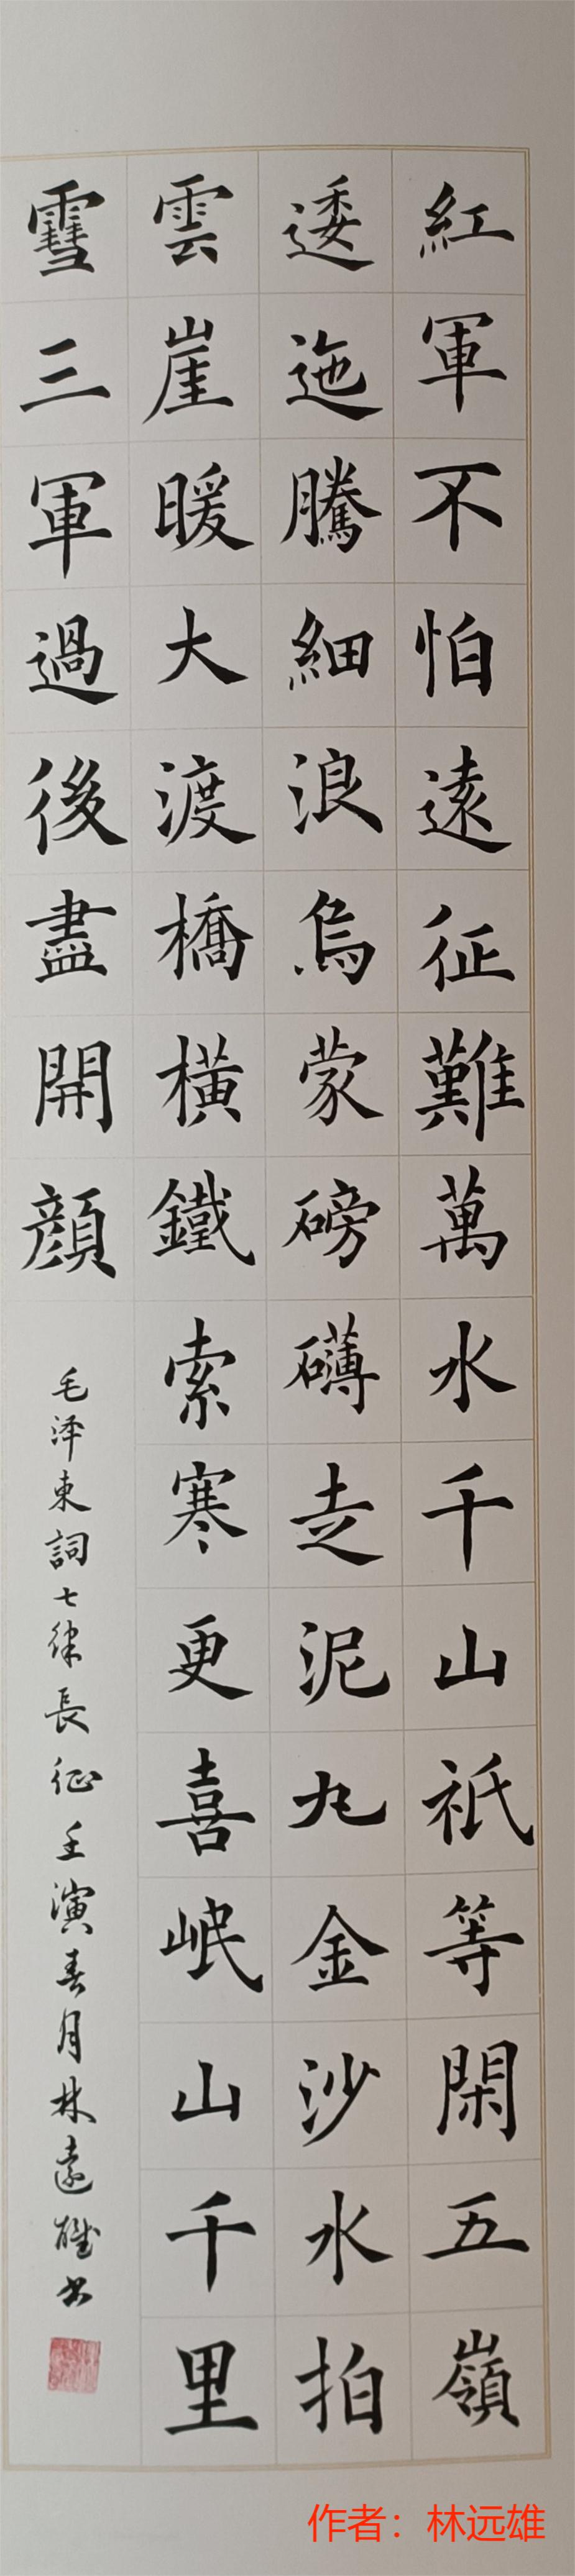 紅軍不怕遠征難萬水千山祇等閑五嶺
逶迤騰細浪烏蒙磅礴走泥丸金沙水拍
雲崖暖大渡橋橫鐵索寒更喜岷山千里
雪三軍過後盡開顔
毛泽東詞七律長征壬演春月林遠雄书
作者：林远雄